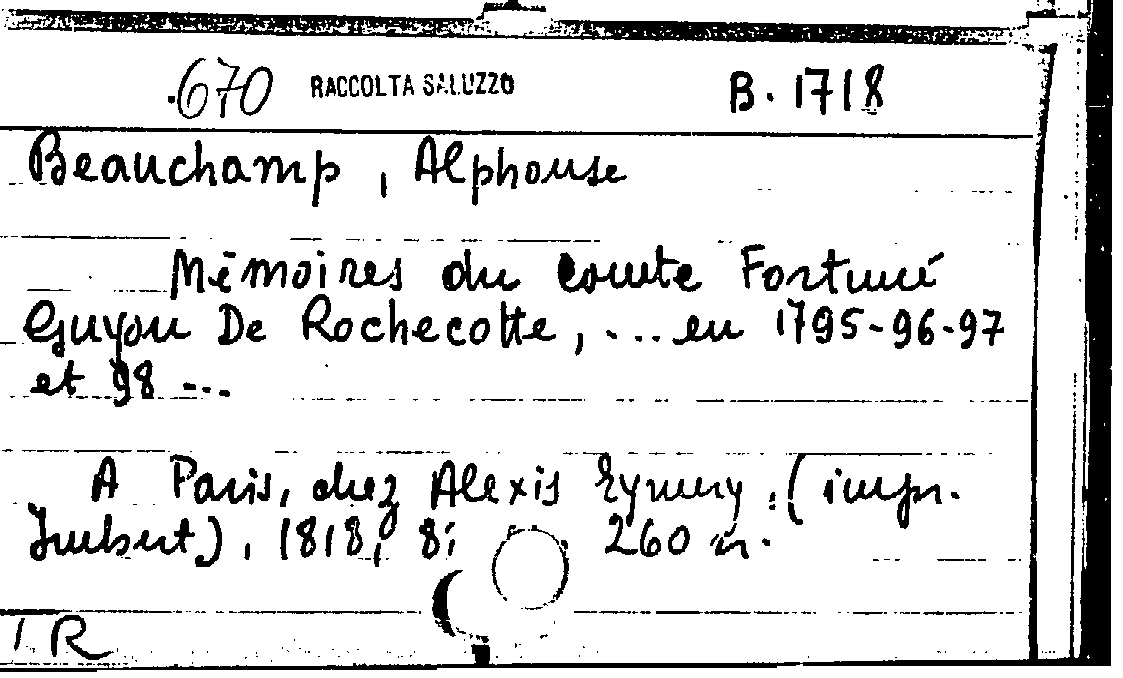 .670 RACCOLTA SALUZZO B. 1718
Beauchamp, Alphonse
Mémoires du Comte Fortuné
Guyon De Rochecotte, ... en 1795-96-97
et 98 ...
A Paris, chez Alexis Eymery, (impr.
Imbert), 1818, 8: 260
I R